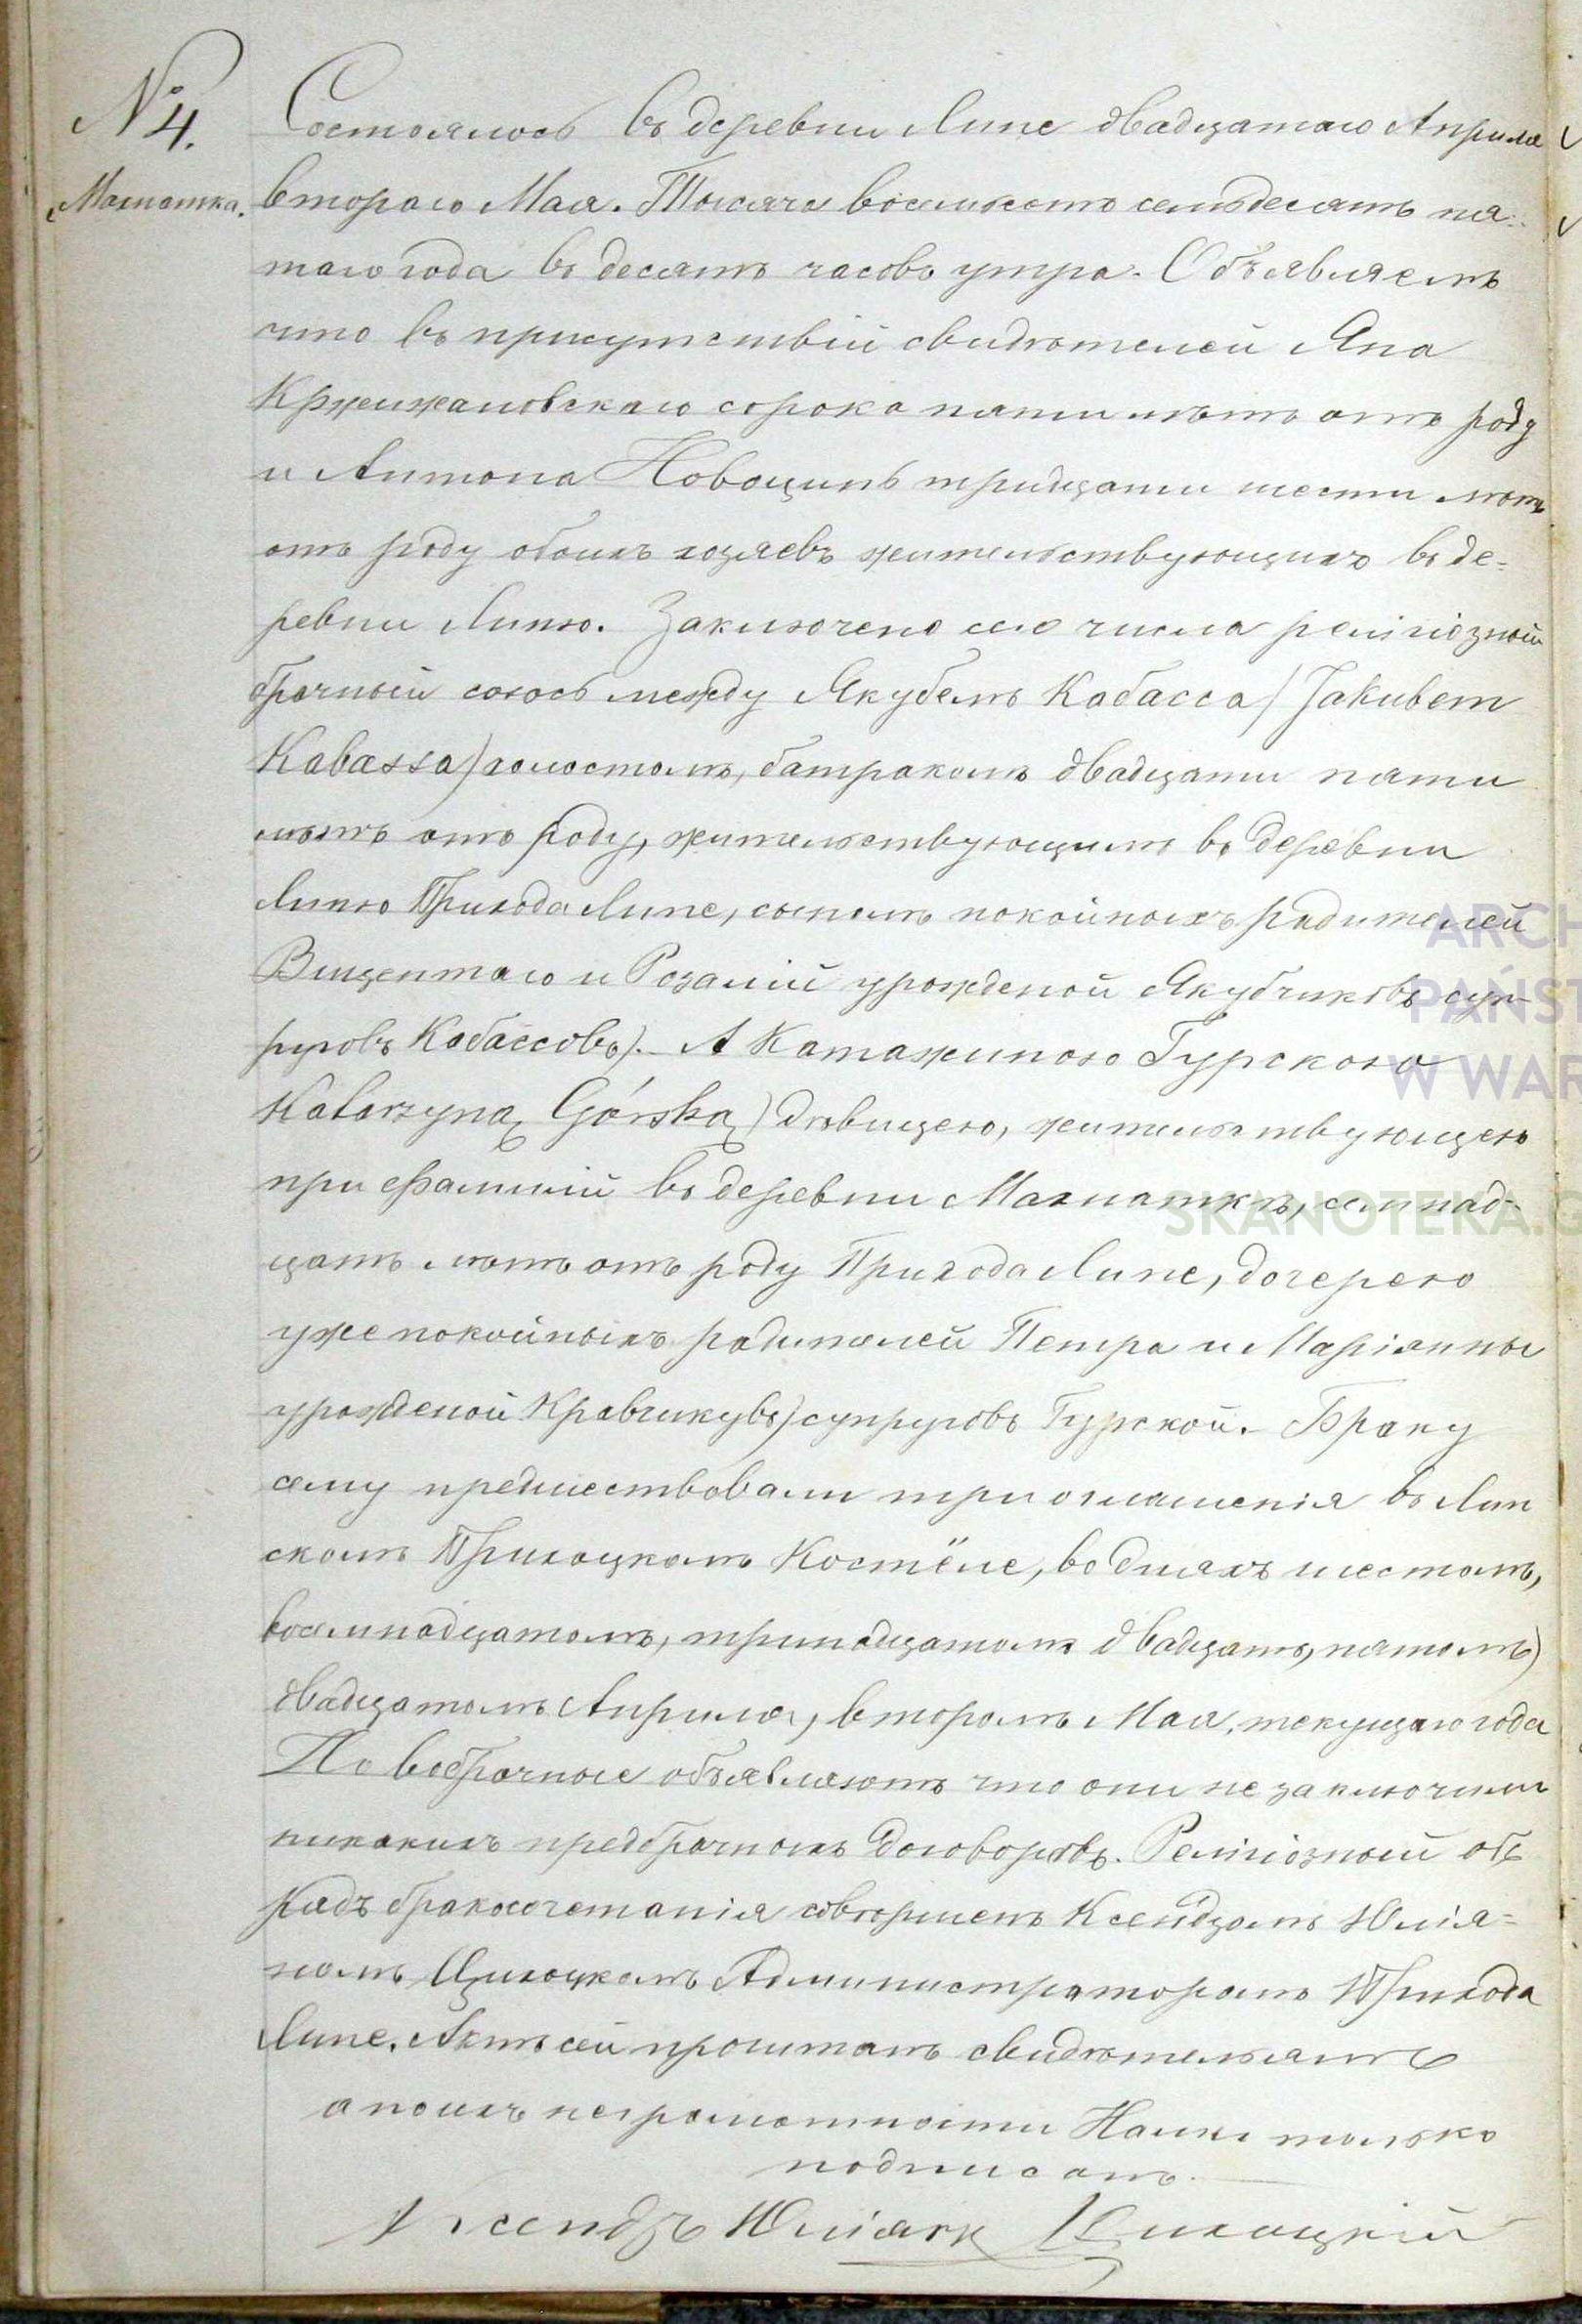 № 4.
Махнатка.
Состоялось въ деревни Липе двадцатаго Апреля
втораго Мая. Тысяча восемьсотъ семьдесятъ пя-
таго года въ десятъ часовъ утра. Объявляемъ
что въ присутствій свидѣтелей Яна
Кржижановскаго сорока пяти лѣтъ отъ роду
и Антона Новоцинь тридцати шести лѣтъ
отъ роду обоихъ хозяевъ жительствующихъ въ де-
ревни Липю. Заключено сего числа религіозный
брачный союсъ между Якубемъ Кабасса / Jakubem
Kabassa) холостымъ, батракомъ двадцати пяти
лѣтъ отъ роду, жительствующимъ въ деревни
Липю Прихода Липе, сыномъ покойныхъ родителей
Вицентаго и Розалій урожденой Якубчиковъ суп-
руговъ Кабассовъ). А Катажиною Гурскою
Katarzyną Górską) дѣвицею, жительствующею
при фамилій въ деревни Махнаткѣ, семнад-
цатъ лѣтъ отъ роду Прихода Липе, дочерею
уже покойныхъ родителей Петра и Маріянны
урожденой Кравчикувъ) супруговъ Гурской. Браку
сему предшествовали три оглашенія въ Лип
скомъ Приходскомъ Костёле, во дняхъ шестомъ,
восемнадцатомъ, тринадцатомъ двадцатъ, пятомъ)
двадцатомъ Апреля, второмъ Мая, текущаго года
Новобрачные объявляютъ что они не заключили
никакихъ предбрачныхъ договоровъ. Религіозный об
рядъ бракосочетанія совершенъ Ксендзомъ Юлія-
номъ Цихоцкомъ Администраторомъ Прихода
Липе. Актъ сей прочитанъ свидѣтельямъ
а по ихъ неграмотности Нами только
подписанъ.
Ксендзъ Юліанъ Цихоцкій